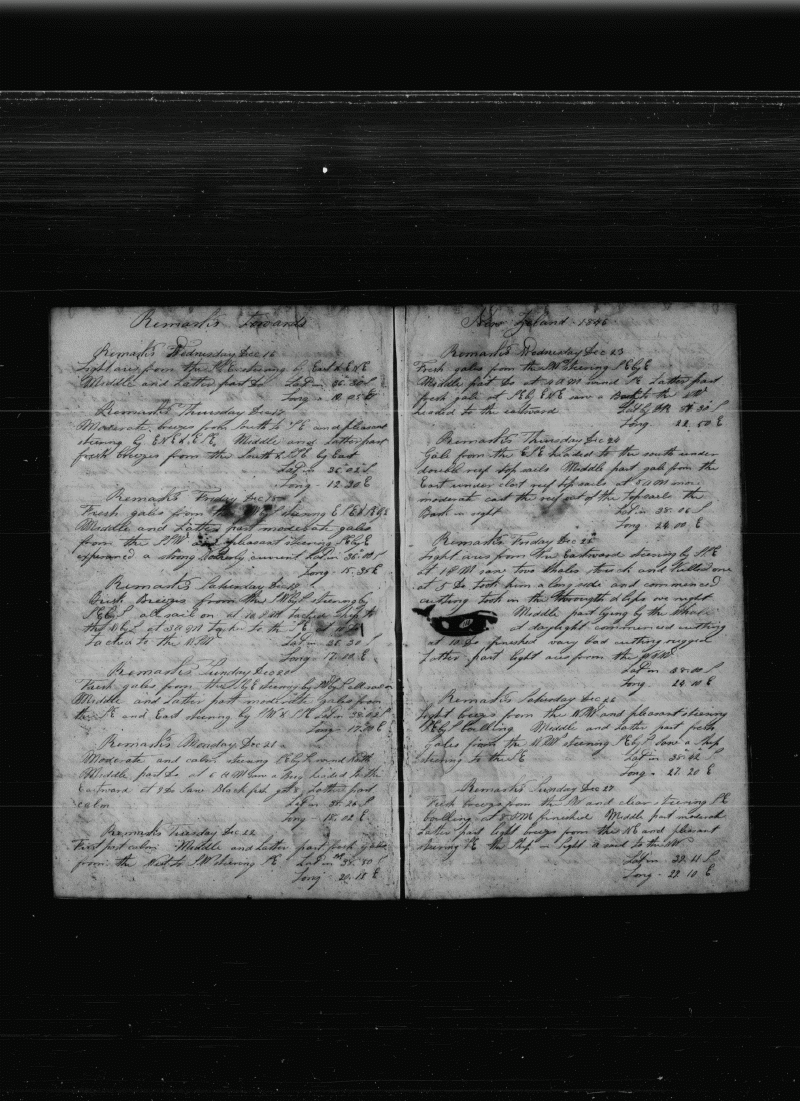 Remarks Towards
Remarks Wednesday Dec 16
Light aires from the steering by East & ENE
Middle and Latter part Do Lat in 36.30 S
Long - 10.05 E
Remarks Thursday Dec 17
Moderate breezes from South to SE and pleasant
steering by ENE & Middle and Latter part
fresh breezes from the South & by East
Lat in 36.02 S
Long - 12.30 E
Remarks Friday Dec 18
Fresh gales from the steering E
Middle and Latter part moderate gales
from the SW pleasant steering
experienced a strong current Lat in 36.00 S
Long - 15.36 E
Remarks Saturday Dec 19
Brisk Breezes from the steering by
all sail on at 10 tacked ship to
the at 3 AM tackt to the
tackt to the Lat in 38.30 S
Long - 17.10 E
Remarks Sunday Dec 20
Fresh gales from the steering by all sail on
Middle and Latter part moderate gales from
the SE and East steering by Lat in
Long - 17.30 E
Remarks Monday Dec 21
Moderate and calm steering wind North
Middle part Do at 6 AM Saw a Brig headed to the
Eastward at 8 Do Saw Black fish Latter part
calm Lat in 38.26 S
Long - 18.02 E
Remarks Tuesday Dec 22
First part calm Middle and Latter part fresh gales
from the West to SW steering SE Lat in
Long - 20.18 E
New Zeland - 1846
Remarks Wednesday Dec 23
Fresh gales from the SW steering SE by E
Middle part Do at 3 AM wound SE Latter part
fresh gale at ENE saw a Bark to the
headed to the eastward Lat by DR 38.30 S
Long - 22.50 E
Remarks Thursday Dec 24
Gale from the headed to the south under
double reef top sails Middle part gale from the
East under close reef top sails at 8 AM more
moderate cast the reef out of the topsails the
Bark in sight Lat in 38.06 S
Long - 24.00 E
Remarks Friday Dec 25
Light aires from the Eastward steering by
at 1 PM saw two whales struck and killed one
at 5 Do took him a long side and commenced
cutting took in the through & lips one night
Middle part lying by the whale
at daylight commenced cutting
at 10 Do finished very bad cutting rugged
Latter part light aires from the
Lat in 38.00 S
Long - 24.10 E
Remarks Saturday Dec 26
Light breezes from the NW and pleasant steering
boiling Middle and Latter part fresh
gales from the NW steering Saw a Ship
steering to the E Lat in 38.42 S
Long - 27.20 E
Remarks Sunday Dec 27
Fresh breezes from the W and clear steering SE
boiling at 8 PM finished Middle part moderate
Latter part light breezes from the NE and pleasant
steering SE the Ship in sight a sail to the
Lat in 39.11 S
Long - 29.10 E